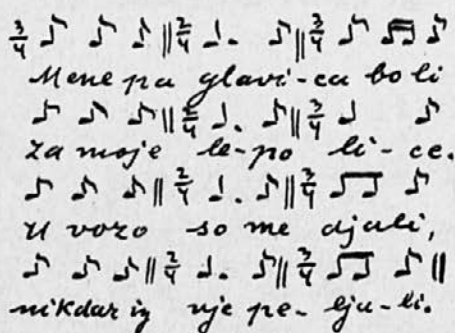 3/4 2/4 3/4
Mene pa glavi-ca boli
2/4 3/4
za moje le-po li-ce.
2/4 3/4
U vozo so me djali,
2/4 3/4
nikdar iz nje pe-lju-li.